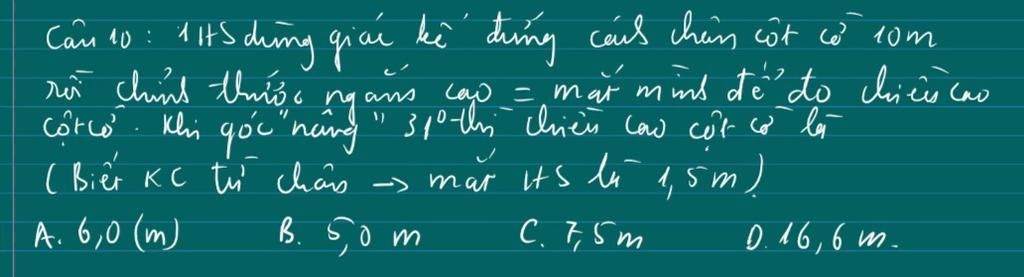 Câu 10 : 1 HS dùng giác kế đứng cách chân cột cờ 10m
rồi chỉnh thước ngắm cao = mắt mình để đo chiều cao
cột cờ. Khi góc "nâng" 31° thì chiều cao cột cờ là
( Biết KC từ chân → mắt HS là 1,5m)
A. 6,0 (m) B. 5,0 m C. 7,5m D. 16,6 m.